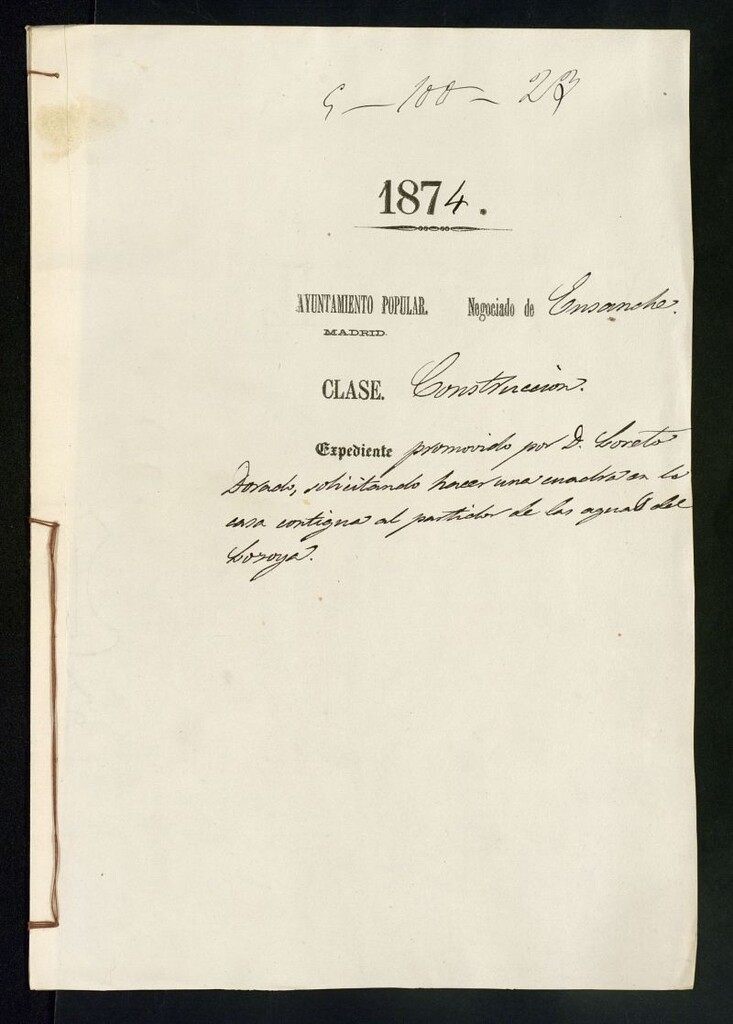 5 - 100 - 23
1874.
AYUNTAMIENTO POPULAR. Negociado de Ensanche.
MADRID.
CLASE. Construccion.
Expediente promovido por D. Loreto
Dorado, solicitando hacer una cuadra en la
casa contigua al partidor de las aguas del
Lozoya.